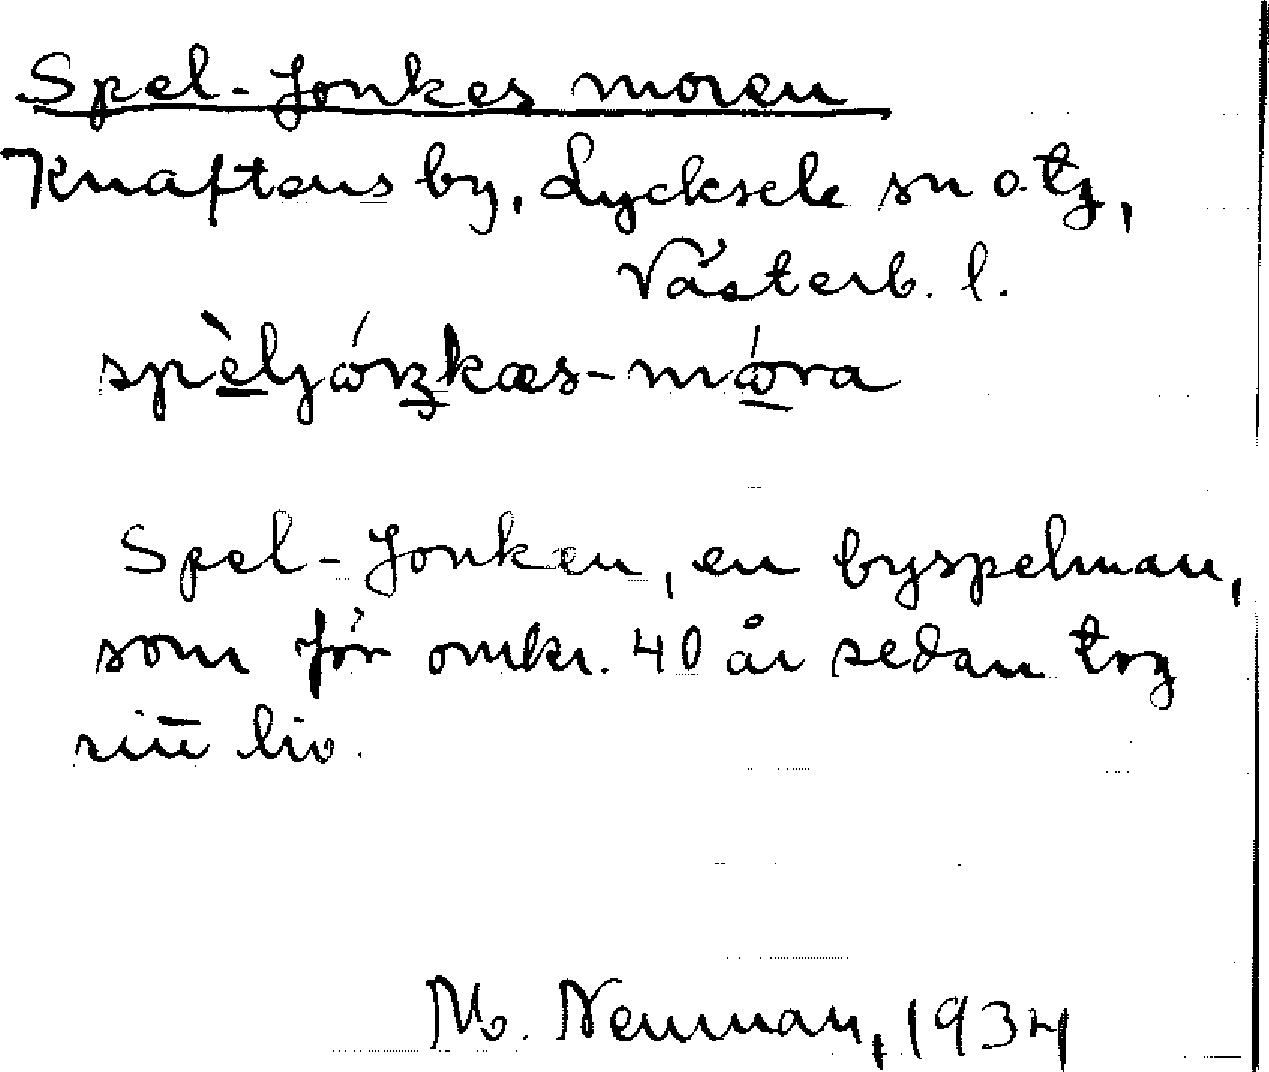 Spel-Jonkes moren
Knaftens by, Lycksele sn o. tg,
Västerb. l.
spèljóŋkæs-móra
Spel-Jonken, en byspelman,
som för omkr. 40 år sedan tog
sitt liv.
M. Neuman, 1934